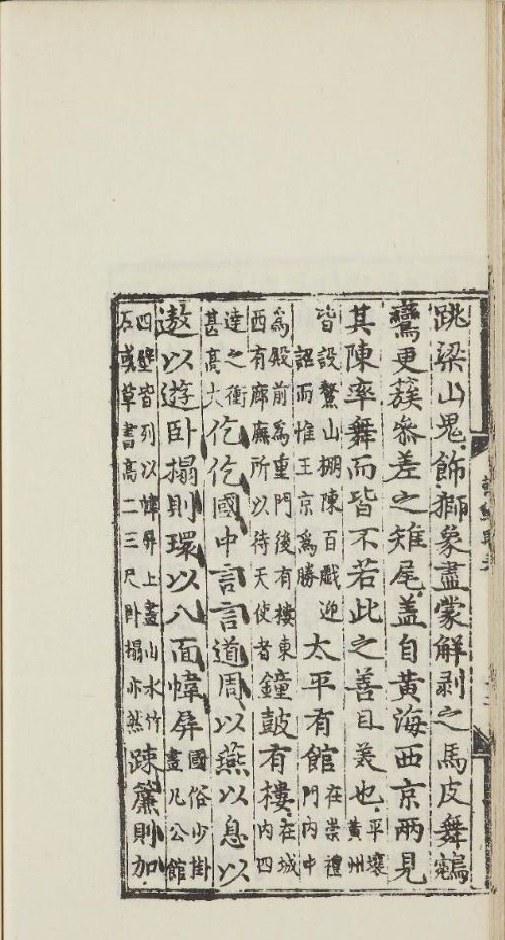 跳梁山鬼飾獅象盡蒙解剥之馬皮舞鵷
鸞更簇參差之雉尾盖自黃海西京兩見
其陳率舞而皆不若此之善且美也平壤
黃州
皆設鰲山棚陳百戲迎
詔而惟王京爲勝太平有館在崇禮
門內中
爲殿前爲重門後有樓東
西有廊廡所以待天使者鐘鼓有樓在城
內四
達之衝
甚高大仡仡國中言言道周以燕以息以
遨以遊卧榻則環以八面幃屏國俗少掛
畫凡公館
四壁皆列以幃屏上畫山水竹
石或草書高二三尺卧榻亦然疎簾則加